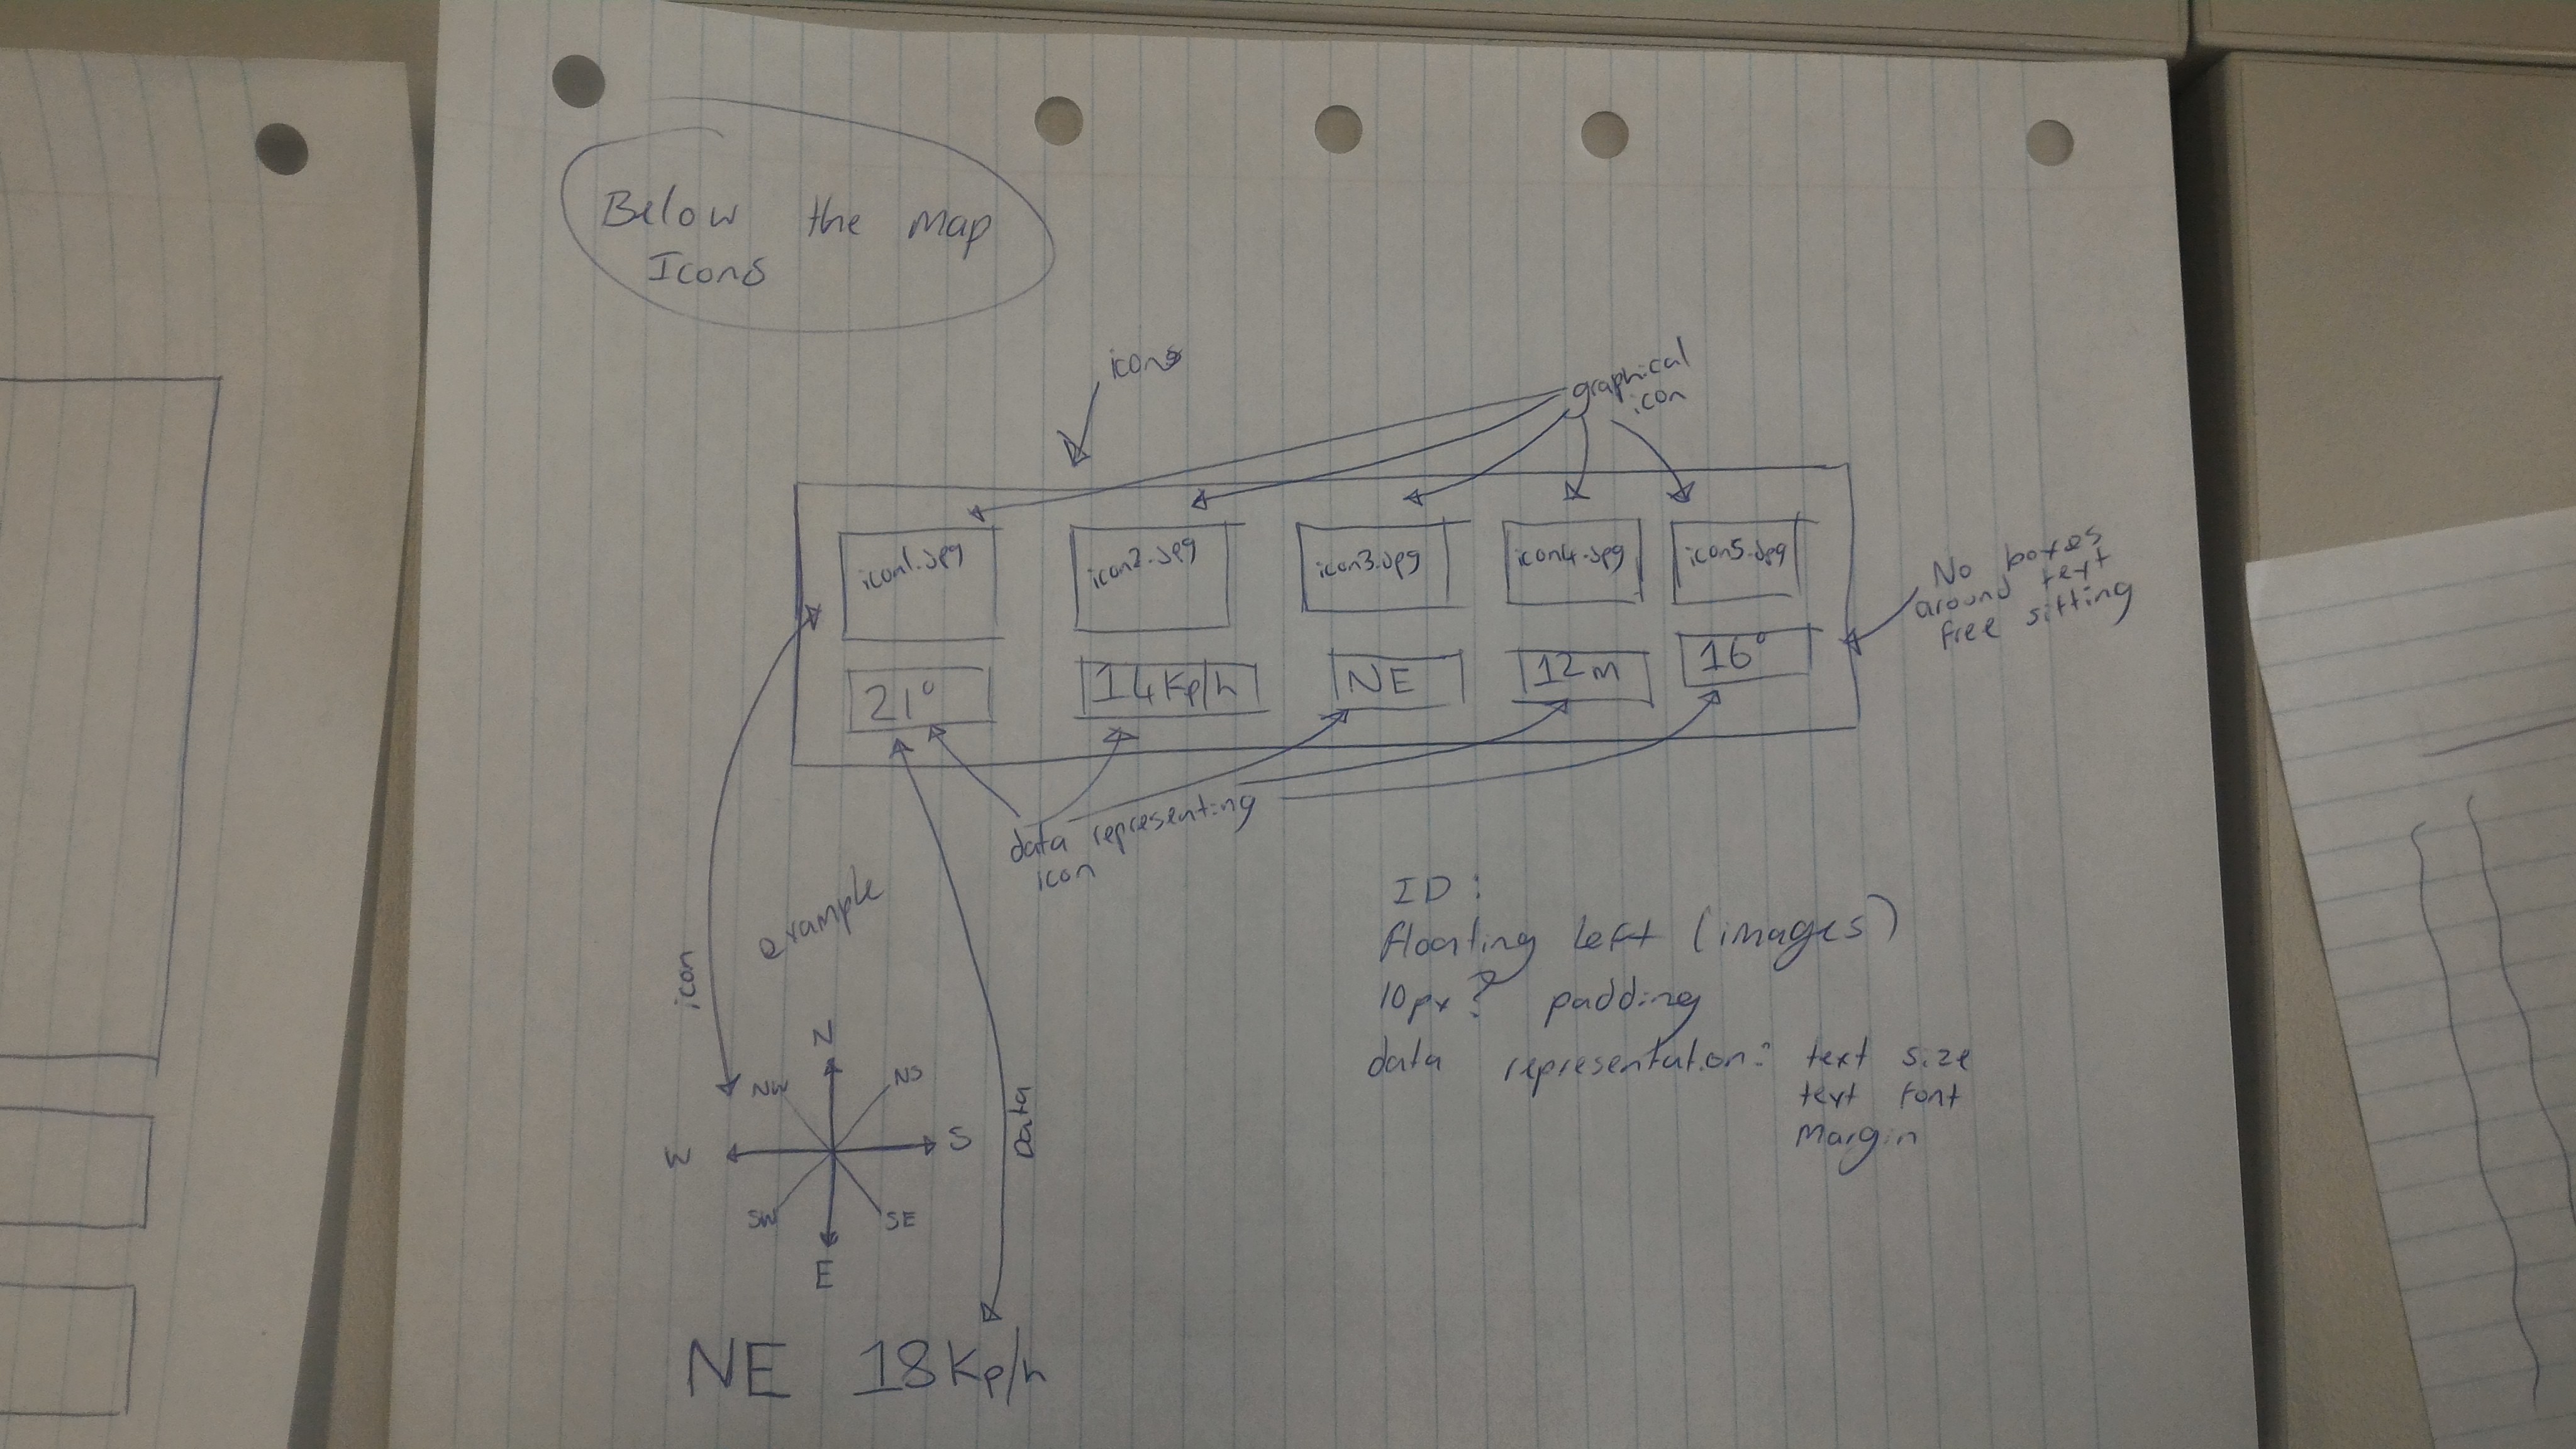 Below the map
Icons
icons
graphical
icon
icon1.jpg
icon2.jpg
icon3.jpg
icon4.jpg
icon5.jpg
No boxes
around text
free sitting
21°
14Kp/h
NE
12m
16°
data representing
icon
example
icon
Data
ID:
floating left (images)
10px? padding
data representation: text size
text font
Margin
N
NW
NS
W
S
SW
SE
E
NE 18Kp/h